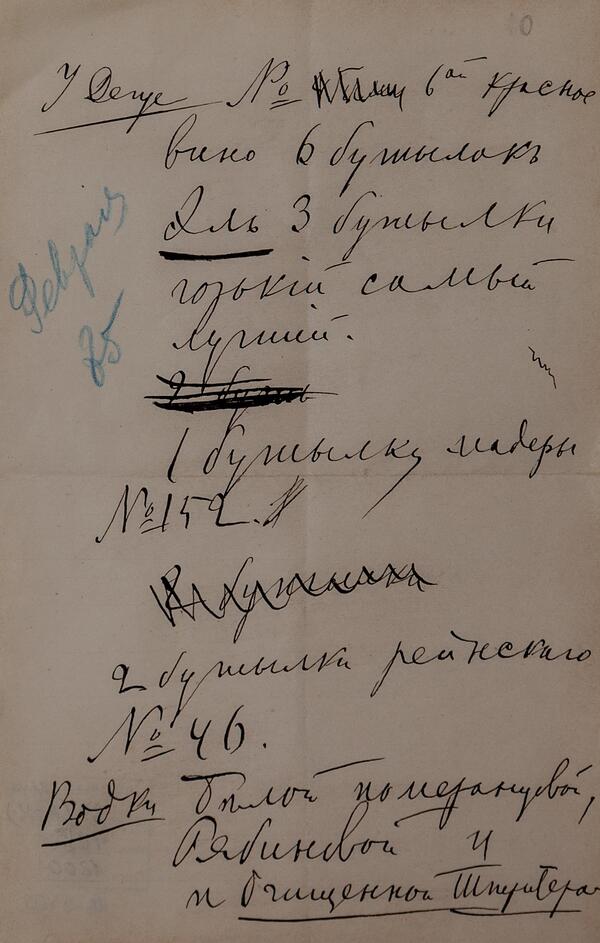 У Депре № 6ой красное
вино 6 бутылокъ
Эль 3 бутылки
горькій самый
лучшій.
1 бутылку мадеры
№ 152.
2 бутылки рейнскаго
№ 46.
Водки бѣлой померанцовой,
Рябиновой и
и очищенной Штритера
Февраля
25